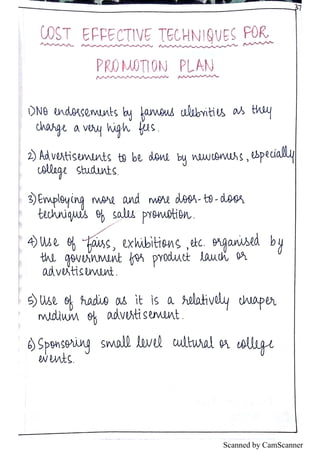 37
COST EFFECTIVE TECHNIQUES FOR
PROMOTION PLAN
1) NO endorsements by famous celebrities as they
charge a very high fees.
2) Advertisements to be done by newcomers, especially
college students.
3) Employing more and more door-to-door
techniques of sales promotion.
4) Use of fairs, exhibitions, etc. organised by
the government for product lauch or
advertisement.
5) Use of radio as it is a relatively cheaper
medium of advertisement.
6) Sponsoring small level cultural or college
events.
Scanned by CamScanner